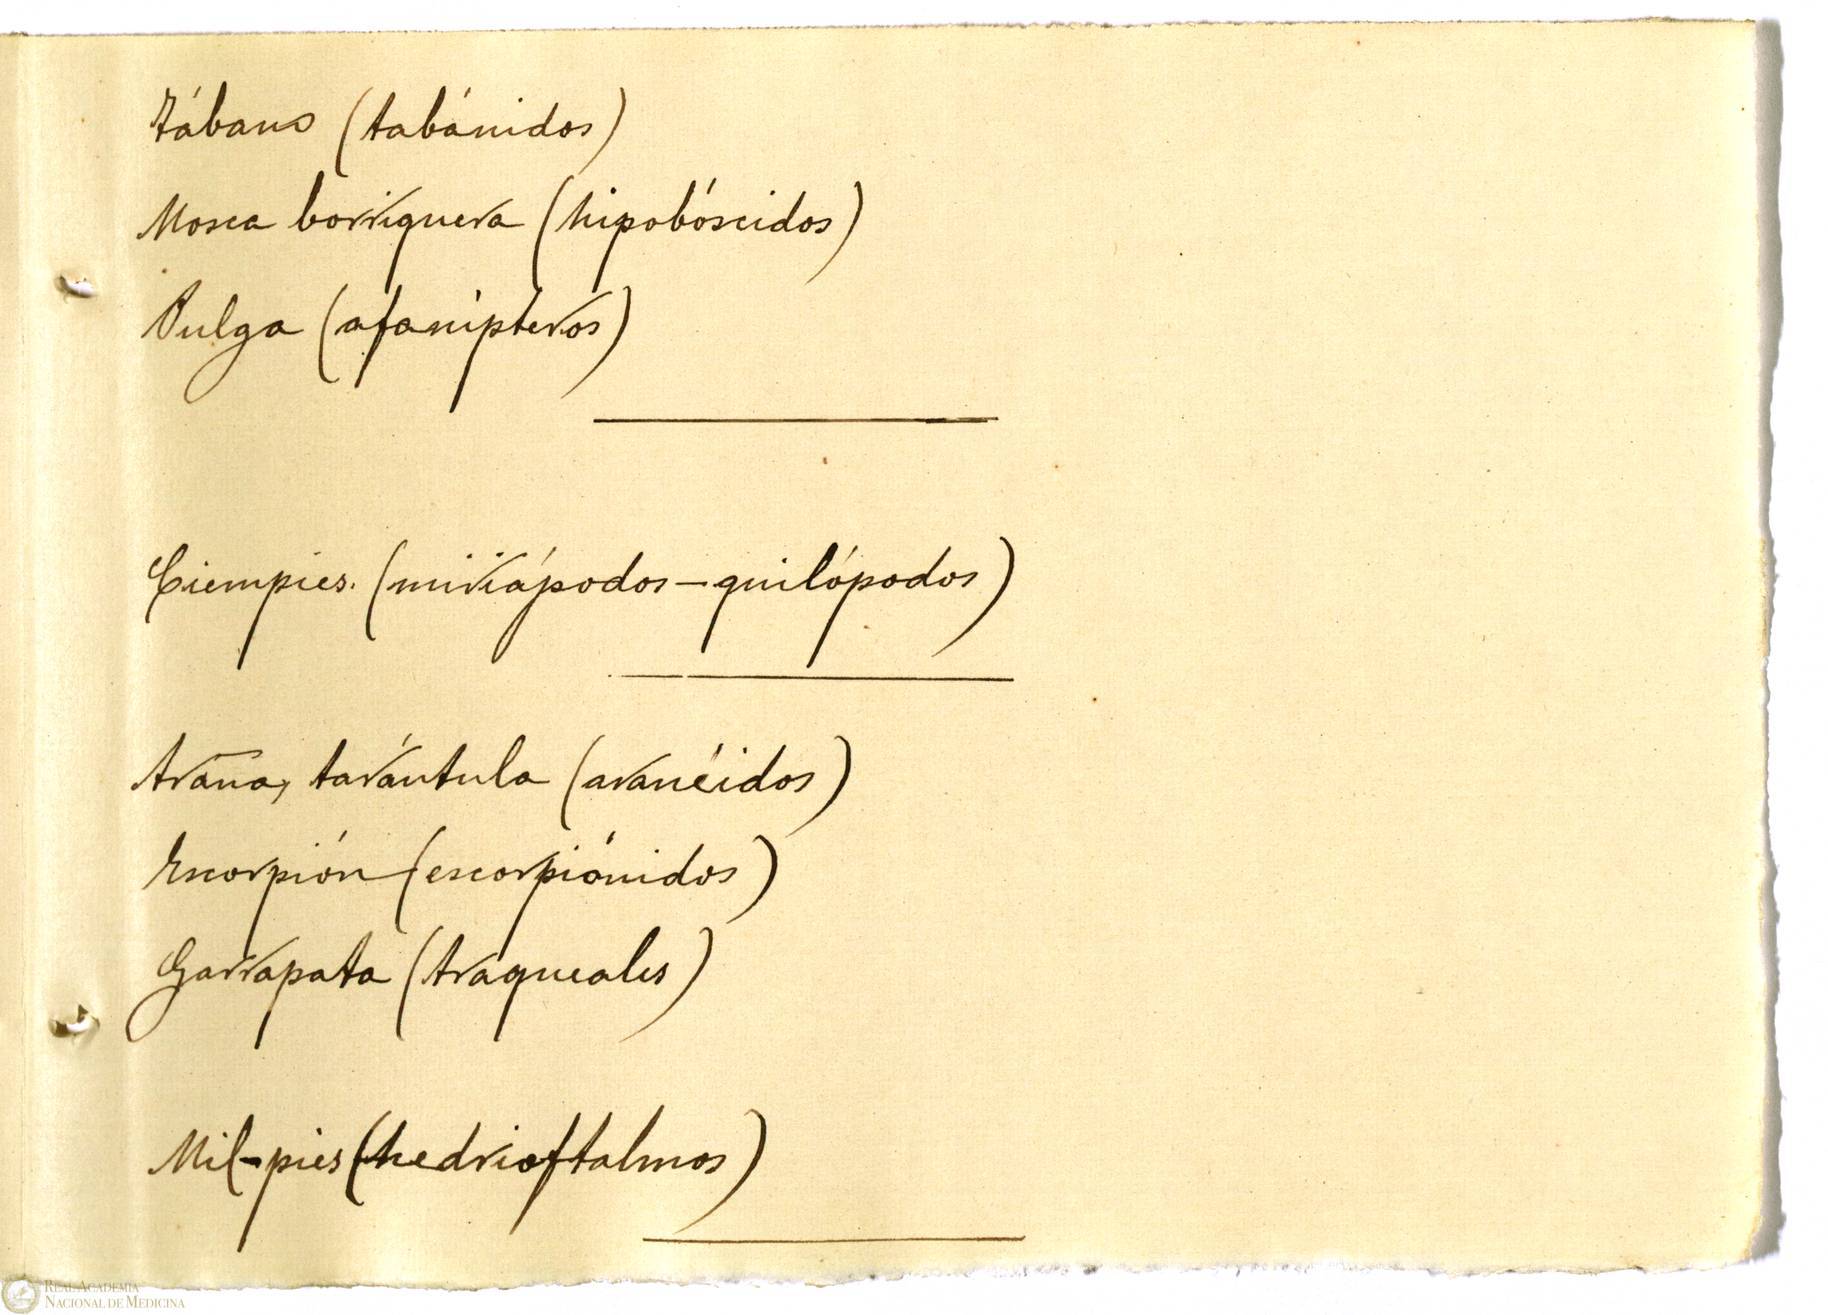 Tábano (tabánidos)
Mosca borriquera (hipobóscidos)
Pulga (afanípteros)
Ciempies. (miriápodos-quilópodos)
Araña, tarántula (aranéidos)
Escorpión (escorpiónidos)
Garrapata (traqueales)
Mil-pies (hedrioftalmos)
REAL ACADEMIA
NACIONAL DE MEDICINA